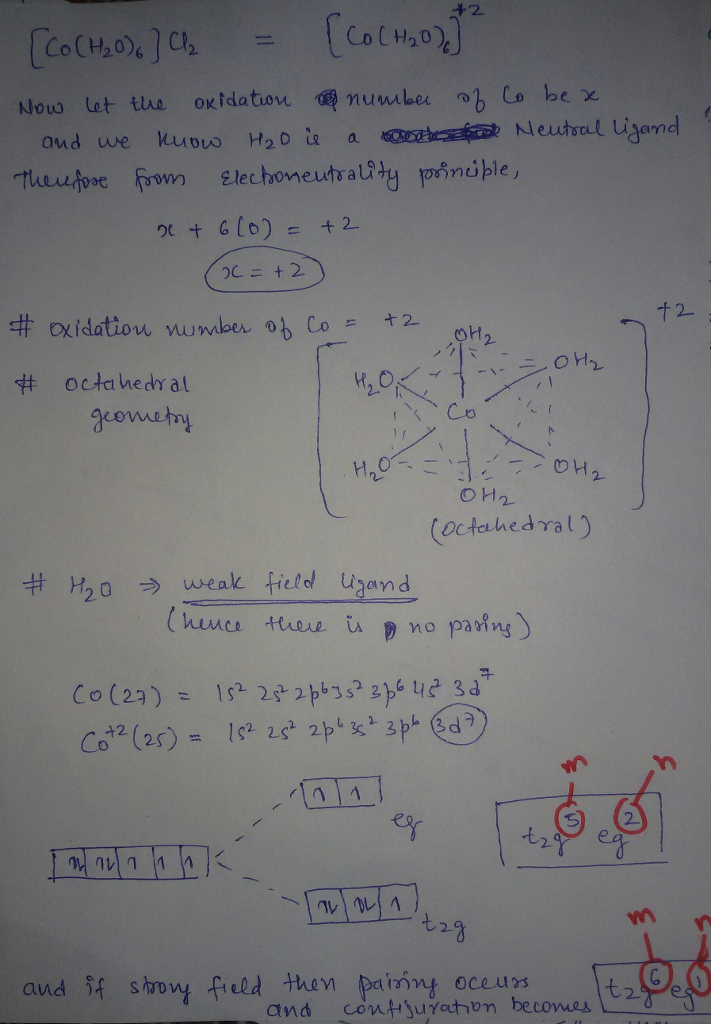 [Co(H₂O)₆]Cl₂ = [Co(H₂O)₆]⁺²
Now let the oxidation number of Co be x
and we know H₂O is a Neutral ligand
Therefore from Electroneutrality principle,
x + 6(0) = +2
x = +2
# oxidation number of Co = +2
# octahedral
geometry
+2
OH₂
H₂O
OH₂
Co
H₂O
OH₂
OH₂
(octahedral)
# H₂O ⇒ weak field ligand
(hence there is no paring)
Co(27) = 1s² 2s² 2p⁶ 3s² 3p⁶ 4s² 3d⁷
Co⁺²(25) = 1s² 2s² 2p⁶ 3s² 3p⁶ 3d⁷
m n
eg
t₂g⁵ eg²
t₂g
m n
and if strong field then pairing occurs
and configuration becomes t₂g⁶ eg¹